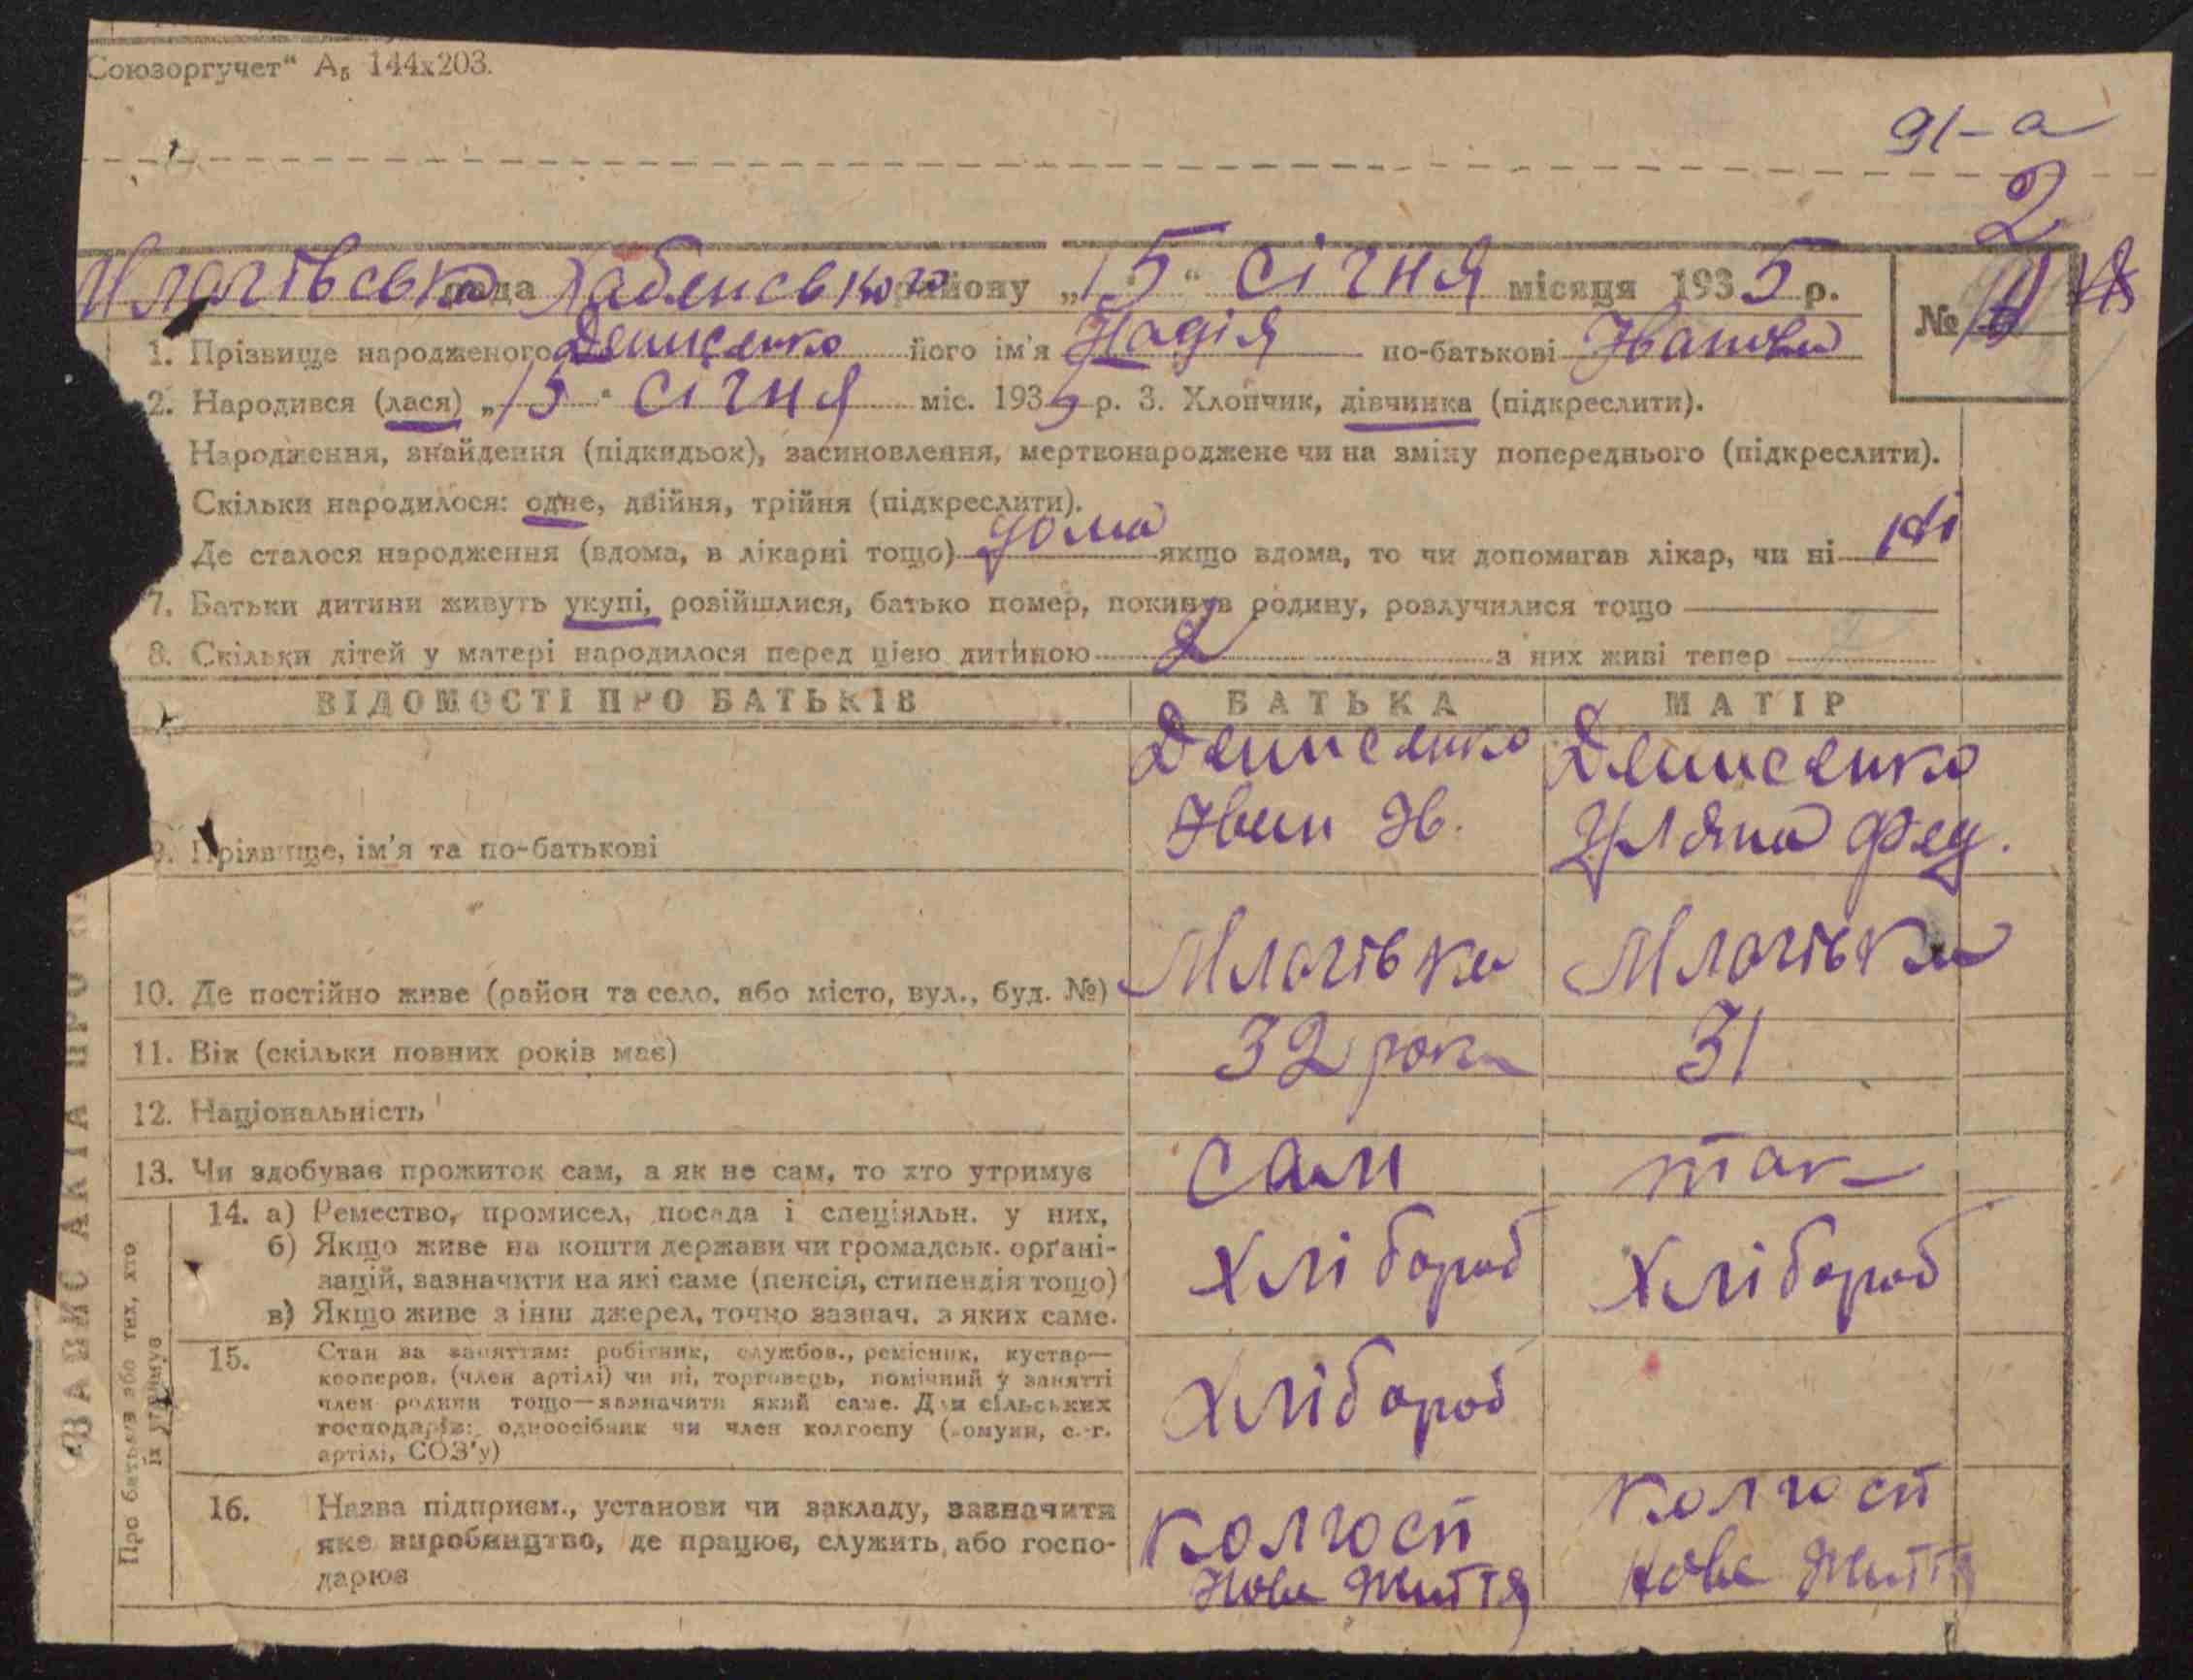 Союзоргучет“ А5 144х203.
91-а
2
Млачівська рада Хабенського району „15“ січня місяця 1935 р.
№
1. Прізвище народженого Денисенко його ім'я Надія по-батькові Іванови
2. Народився (лася) „15“ січня міс. 1935 р. 3. Хлопчик, дівчинка (підкреслити).
Народження, знайдення (підкидьок), засиновлення, мертвонароджене чи на зміну попереднього (підкреслити).
Скільки народилося: одне, двійня, трійня (підкреслити).
Де сталося народження (вдома, в лікарні тощо) дома якщо вдома, то чи допомагав лікар, чи ні ні
7. Батьки дитини живуть укупі, розійшлися, батько помер, покинув родину, розлучилися тощо
8. Скільки дітей у матері народилося перед цією дитиною 2 з них живі тепер
ВІДОМОСТІ ПРО БАТЬКІВ БАТЬКА МАТІР
Денисенко Денисенко
9. Прізвище, ім'я та по-батькові Іван Ів. Уляна Фед.
10. Де постійно живе (район та село, або місто, вул., буд. №) Млачівка Млачівка
11. Вік (скільки повних років має) 32 роки 31
12. Національність
13. Чи здобуває прожиток сам, а як не сам, то хто утримує сам так
14. а) Ремество, промисел, посада і спеціяльн. у них,
б) Якщо живе на кошти держави чи громадськ. орґані-
зацій, зазначити на які саме (пенсія, стипендія тощо) Хлібороб Хлібороб
в) Якщо живе з інш джерел, точно зазнач. з яких саме.
15. Стан за заняттям: робітник, службов., ремісник, кустар—
кооперов. (член артілі) чи ні, торговець, помічний у занятті
член родини тощо—зазначити який саме. Для сільських
господарів: одноосібник чи член колгоспу (комуни, с.-г.
артілі, СОЗ'у) Хлібороб
16. Назва підприєм., установи чи закладу, зазначити
яке виробництво, де працює, служить, або госпо-
дарює
колгосп колгосп
Нове життя нове життя
ЗАПИС АКТА ПРО
Про батьків або тих, хто
їх утримує